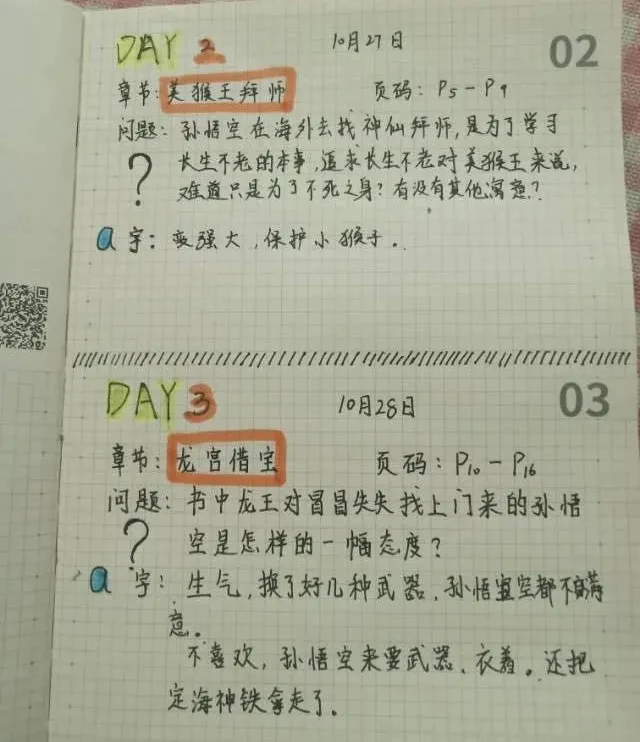 DAY 2 10月27日 02
章节:美猴王拜师 页码:P5-P9
问题:孙悟空在海外去找神仙拜师,是为了学习
? 长生不老的本事,追求长生不老对美猴王来说,
难道只是为了不死之身?有没有其他寓意?
a 字:变强大,保护小猴子。
DAY 3 10月28日 03
章节:龙宫借宝 页码:P10-P16
问题:书中龙王对冒冒失失找上门来的孙悟
? 空是怎样的一幅态度?
a 字:生气,换了好几种武器,孙悟空都不满
意。
不喜欢,孙悟空来要武器、衣着。还把
定海神铁拿走了。